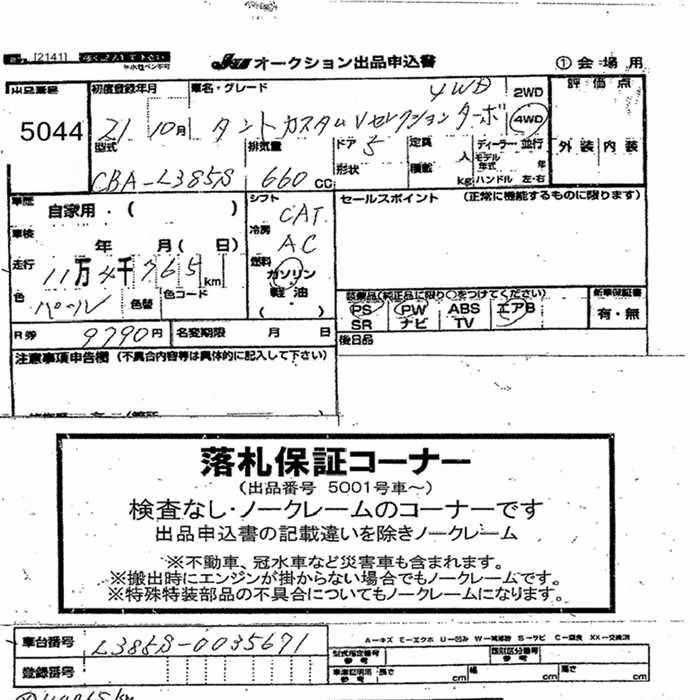 [2141]
JAA オークション出品申込書 ①会場用
出品番号 初度登録年月 車名・グレード 評価点
5044 21 10月 タントカスタムVセレクションターボ 4WD 2WD 4WD
型式 排気量 ドア 5 定員 人 ディーラー 並行 外装 内装
CBA-L385S 660cc 形状 積載 kg モデル年式 年 ハンドル 左・右
車歴 自家用・( ) シフト CAT セールスポイント (正常に機能するものに限ります)
車検 年 月( 日) 冷房 AC
走行 11万4千765km 燃料 ガソリン 軽油 ( )
色 パール 色替 色コード
装備品(純正品に限り○をつけてください) 新車保証書
PS PW ABS エアB 有・無
SR ナビ TV
R券 9790円 名変期限 月 日 後日品
注意事項申告欄 (不具合内容等は具体的に記入して下さい)
落札保証コーナー
(出品番号 5001号車~)
検査なし・ノークレームのコーナーです
出品申込書の記載違いを除きノークレーム
※不動車、冠水車など災害車も含まれます。
※搬出時にエンジンが掛からない場合でもノークレームです。
※特殊特装部品の不具合についてもノークレームになります。
車台番号 L385S-0035671
A-キズ E-エクボ U-凹み W-補修跡 S-サビ C-腐食 XX-交換済
型式指定番号 参考 類別区分番号 参考
登録番号 長さ cm 幅 cm 高さ cm